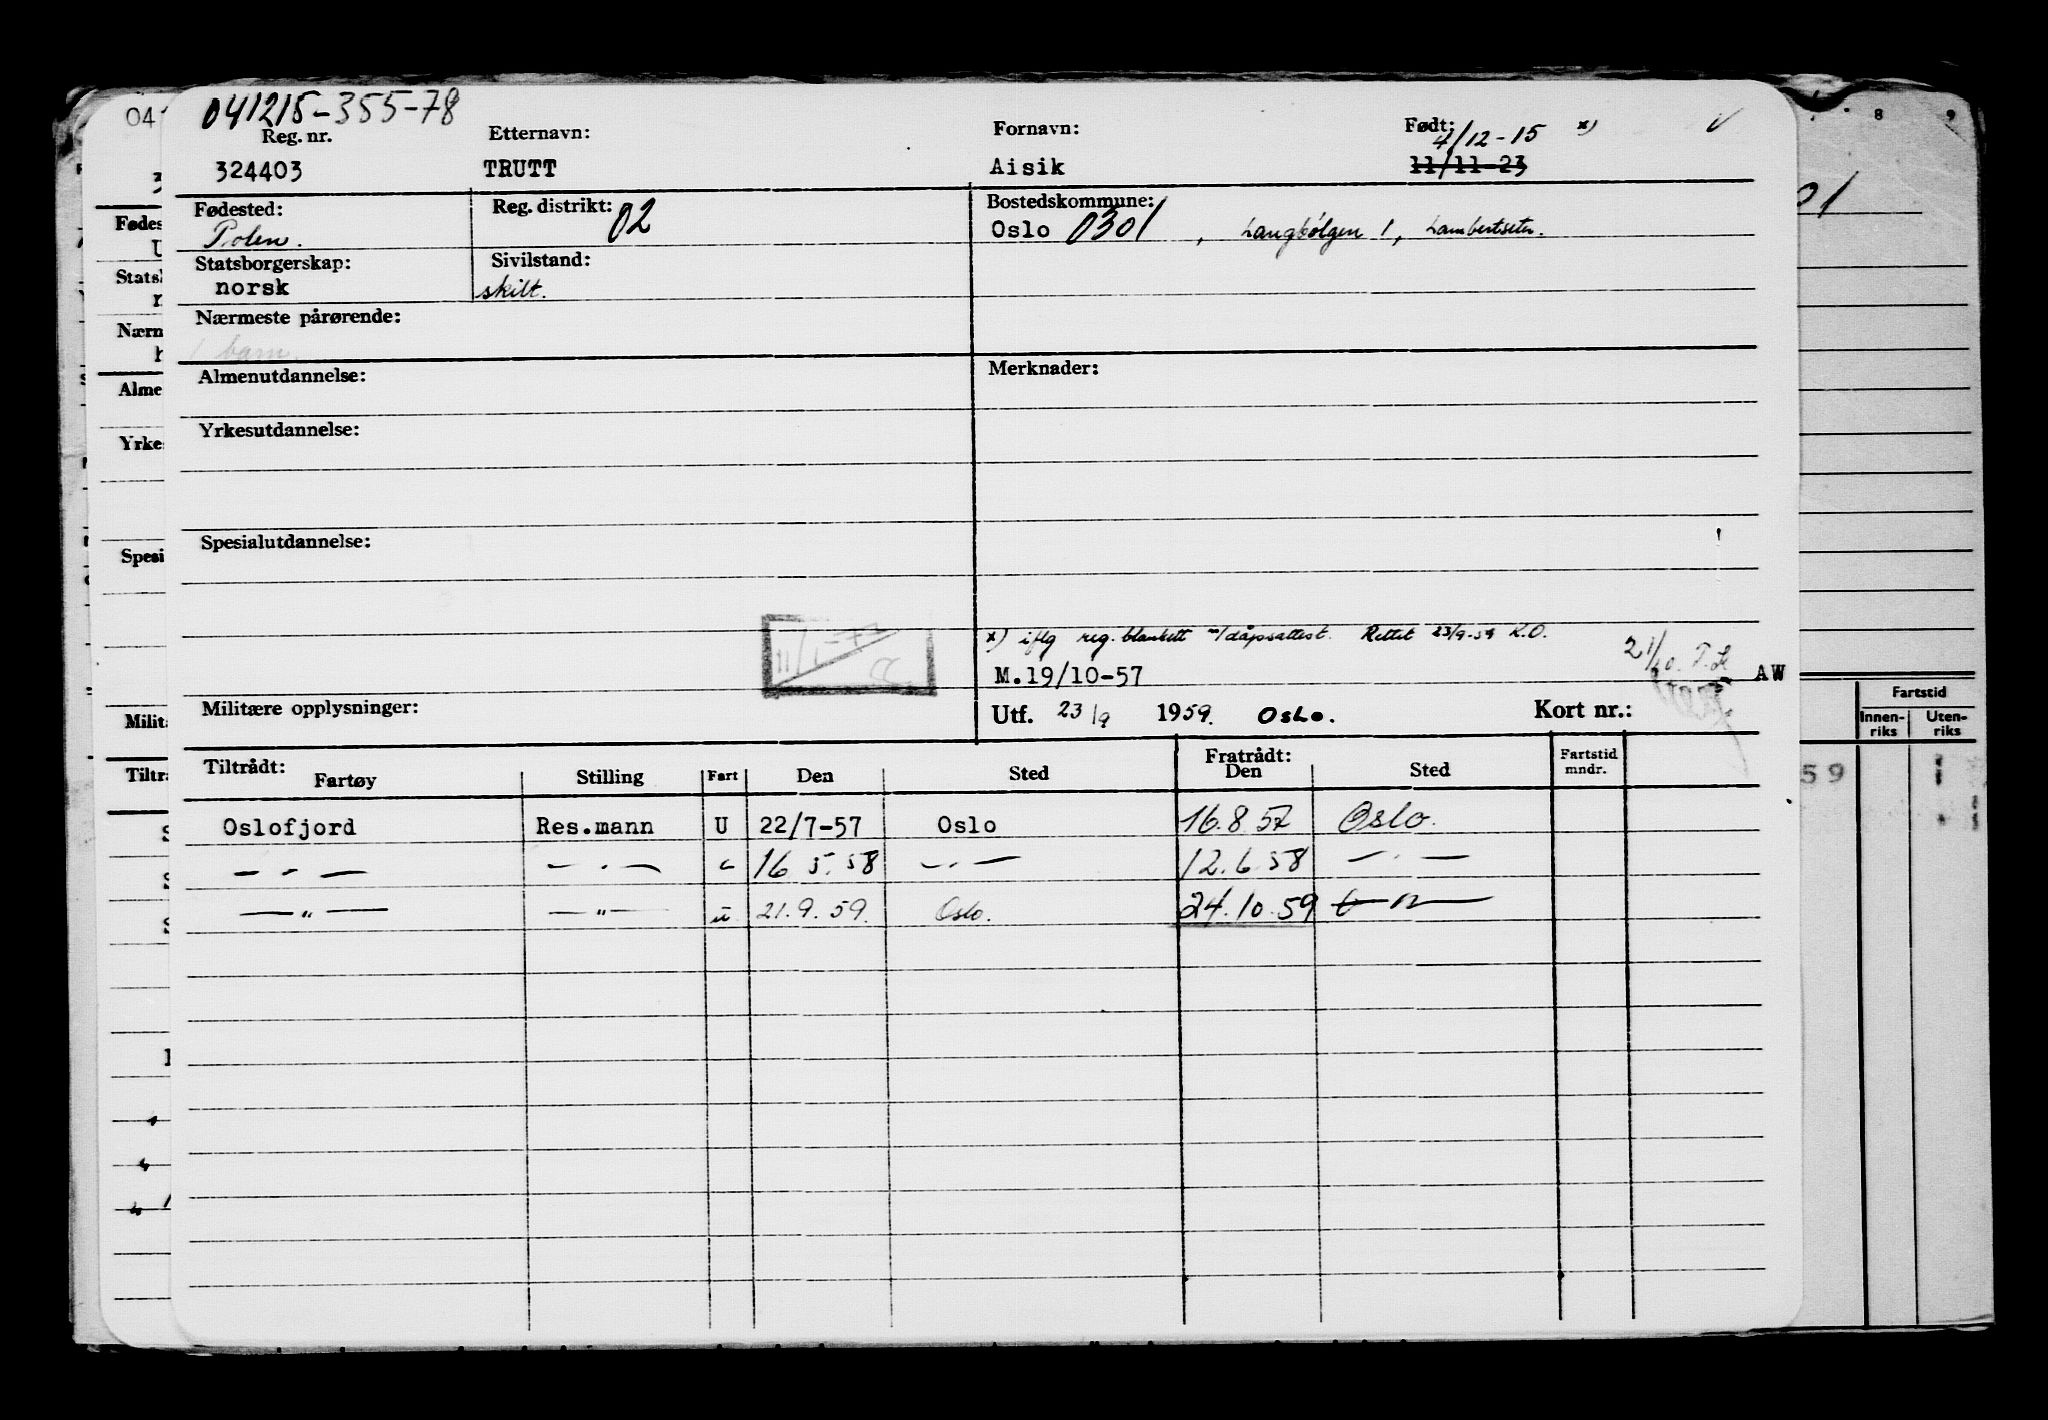 041215-355-78
Reg. nr. Etternavn: Fornavn: Født: 4/12-15 x)
324403 TRUTT Aisik 11/11-23
Fødested: Reg. distrikt: 02 Bostedskommune:
Polen. Oslo 0301, Langbølgen 1, Lambertseter.
Statsborgerskap: Sivilstand:
norsk skilt.
Nærmeste pårørende:
1 barn.
Almenutdannelse: Merknader:
Yrkesutdannelse:
Spesialutdannelse:
x) iflg reg. blankett m/dåpsattest. Rettet 23/9-59 K.O.
M.19/10-57 AW
Militære opplysninger: Utf. 23/9 1959. Oslo. Kort nr.:
Tiltrådt: Fratrådt: Fartstid
Fartøy Stilling Fart Den Sted Den Sted mndr.
Oslofjord Res.mann U 22/7-57 Oslo 16.8.57 Oslo.
— " — — . — " 16 5. 58 — . — 12.6.58 — . —
— " — — " — u 21.9.59. Oslo. 24.10.59 — " —
04
8 9
01
Fartstid
Innen-
riks
Uten-
riks
59